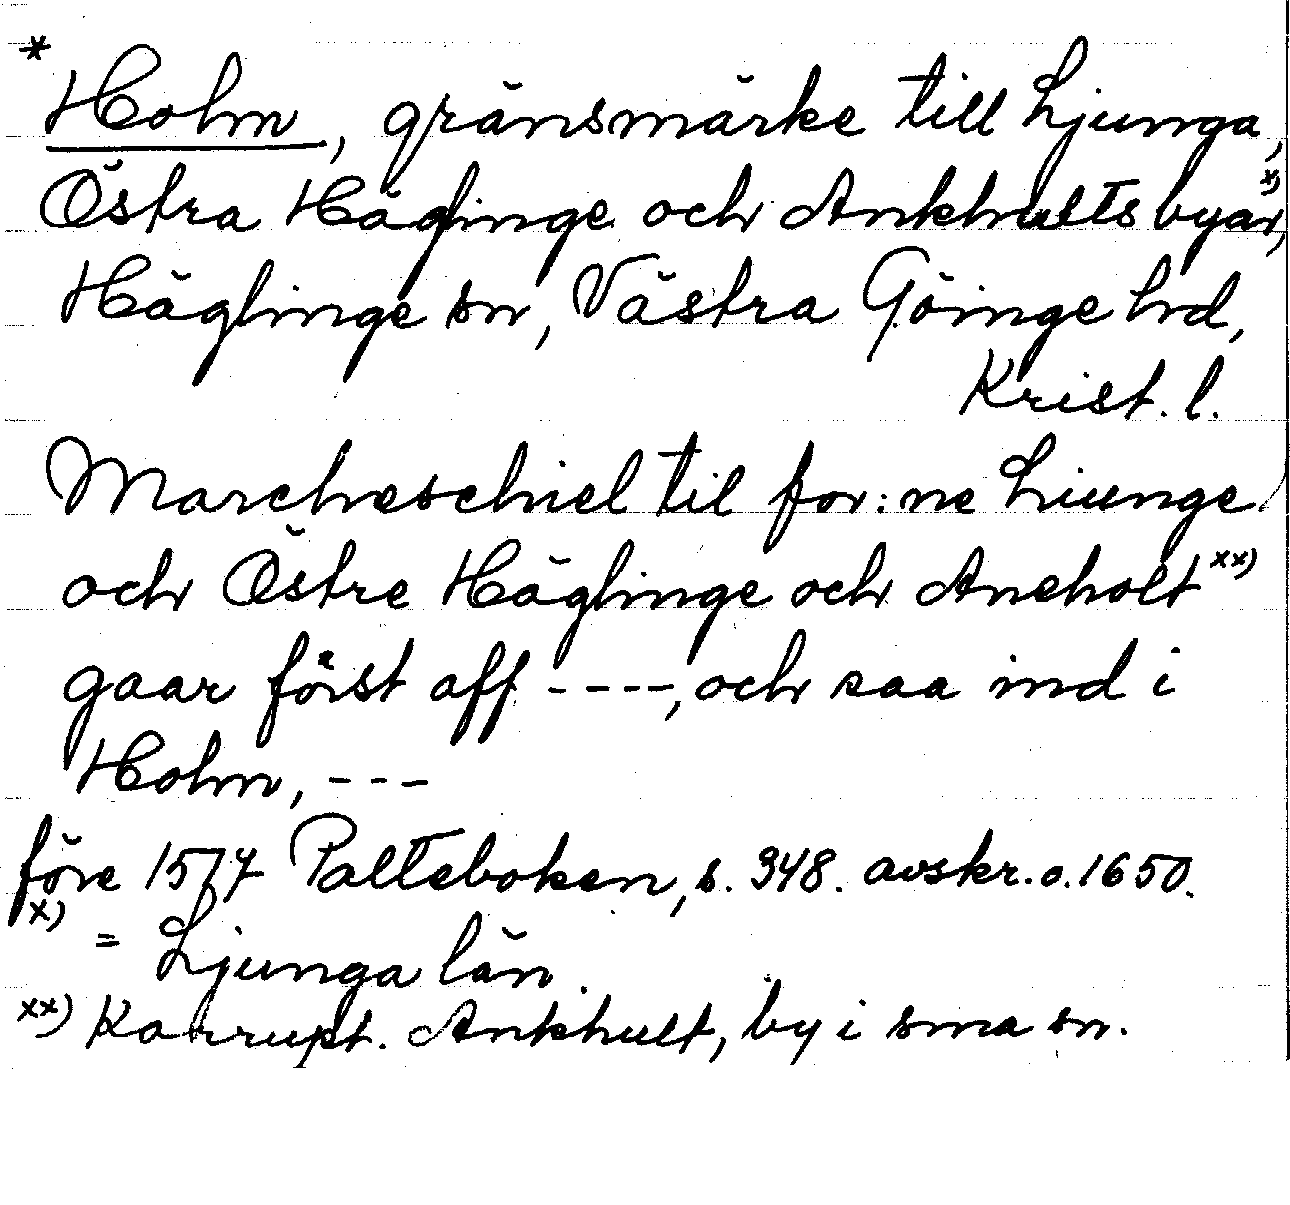 * Holm, gränsmärke till Ljunga,
Östra Häglinge och Ankhults byar, x)
Häglinge sn, Västra Göinge hrd,
Krist. l.
Marcheschiel til for:ne Liunge
och Östre Häglinge och Aneholt xx)
gaar först aff ----, och saa ind i
Holm, ---
före 1577 Palteboken, s. 348. avskr. o. 1650.
x) = Ljunga län.
xx) Korrupt. Ankhult, by i sma sn.